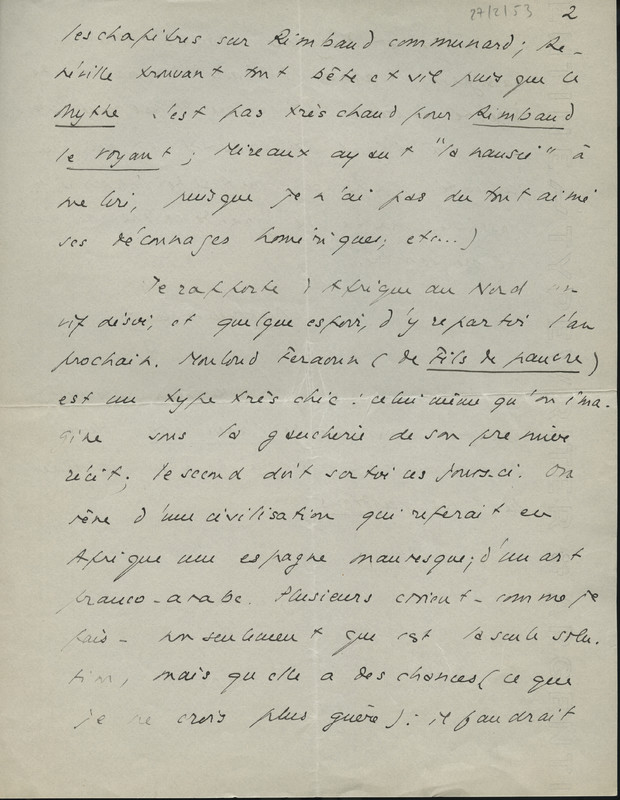 27/2/53 2
les chapitres sur Rimbaud communard ; Re-
néville trouvant tout bête et vil puis que le
Mythe n'est pas très chaud pour Rimbaud
le voyant ; Mireaux ayant "la nausée" à
me lire, puisque je n'ai pas du tout aimé
ses déconnages homériques ; etc...)
Je rapporte d'Afrique du Nord un
vif désir, et quelque espoir, d'y repartir l'an
prochain. Mouloud Feraoun ( de Fils de pauvre )
est un type très chic : celui même qu'on ima-
gine sous la gaucherie de son premier
récit ; le second doit sortir ces jours-ci. On
rêve d'une civilisation qui referait en
Afrique une espagne mauresque ; d'un art
franco-arabe. Plusieurs croient - comme je
fais - non seulement que c'est la seule solu-
tion, mais qu'elle a des chances ( ce que
je ne crois plus guère ) : il faudrait